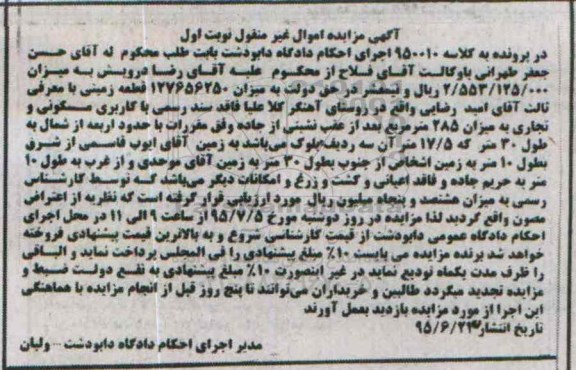 آگهی مزایده اموال غیر منقول نوبت اول
در پرونده به کلاسه ۹۵۰۰۱۰ اجرای احکام دادگاه دابودشت بابت طلب محکوم له آقای حسن
جعفر طهرانی باوکالت آقای فلاح از محکوم علیه آقای رضا درویش به میزان
۲/۵۵۳/۱۲۵/۰۰۰ ریال و نیمعشر در حق دولت به میزان ۱۲۷۶۵۶۲۵۰ قطعه زمینی با معرفی
ثالث آقای امید رضایی واقع در روستای آهنگر کلا علیا فاقد سند رسمی با کاربری مسکونی و
تجاری به میزان ۲۸۵ مترمربع بعد از عقب نشینی از جاده وفق مقررات با حدود اربعه از شمال به
طول ۳۰ متر که ۱۷/۵ متر آن سه ردیف بلوک میباشد به زمین آقای ایوب قاسمی از شرق
بطول ۱۰ متر به زمین اشخاص از جنوب بطول ۳۰ متر به زمین آقای موحدی و از غرب به طول ۱۰
متر به حریم جاده و فاقد اعیانی و کشت و زرع و امکانات دیگر می‌باشد که توسط کارشناس
رسمی به میزان هشتصد و پنجاه میلیون ریال مورد ارزیابی قرار گرفته است که نظریه از اعتراض
مصون واقع گردید لذا مزایده در روز دوشنبه مورخ ۹۵/۷/۵ از ساعت ۹ الی ۱۱ در محل اجرای
احکام دادگاه عمومی دابودشت از قیمت کارشناسی شروع و به بالاترین قیمت پیشنهادی فروخته
خواهد شد برنده مزایده می بایست ۱۰٪ مبلغ پیشنهادی را فی المجلس پرداخت نماید و الباقی
را ظرف مدت یکماه تودیع نماید در غیر اینصورت ۱۰٪ مبلغ پیشنهادی به نفع دولت ضبط و
مزایده تجدید میگردد طالبین و خریداران می‌توانند تا پنج روز قبل از انجام مزایده با هماهنگی
این اجرا از مورد مزایده بازدید بعمل آورند
تاریخ انتشار ۹۵/۶/۲۴
مدیر اجرای احکام دادگاه دابودشت - ولیان